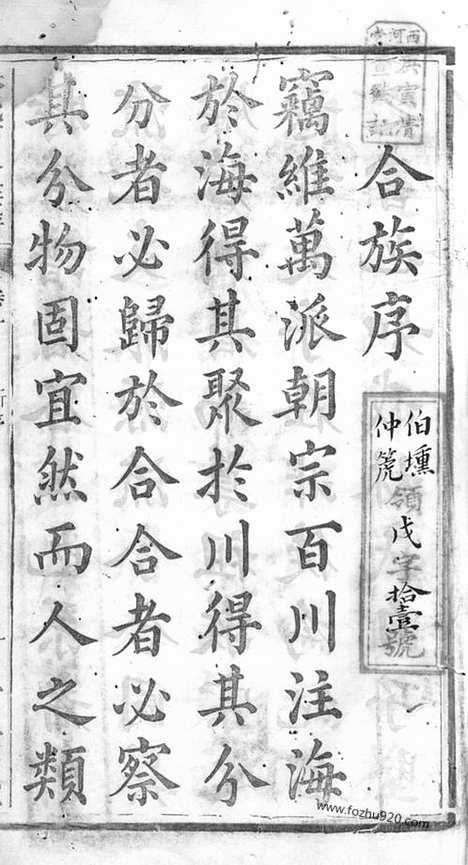 合族序
伯壎
仲箎
領戊字拾壹號
竊維萬派朝宗百川注海
於海得其聚於川得其分
分者必歸於合合者必察
其分物固宜然而人之類
www.fozhu920.com